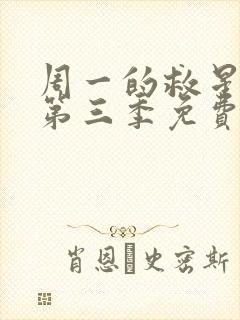 周一的救星
第三季免費
肖恩·史密斯